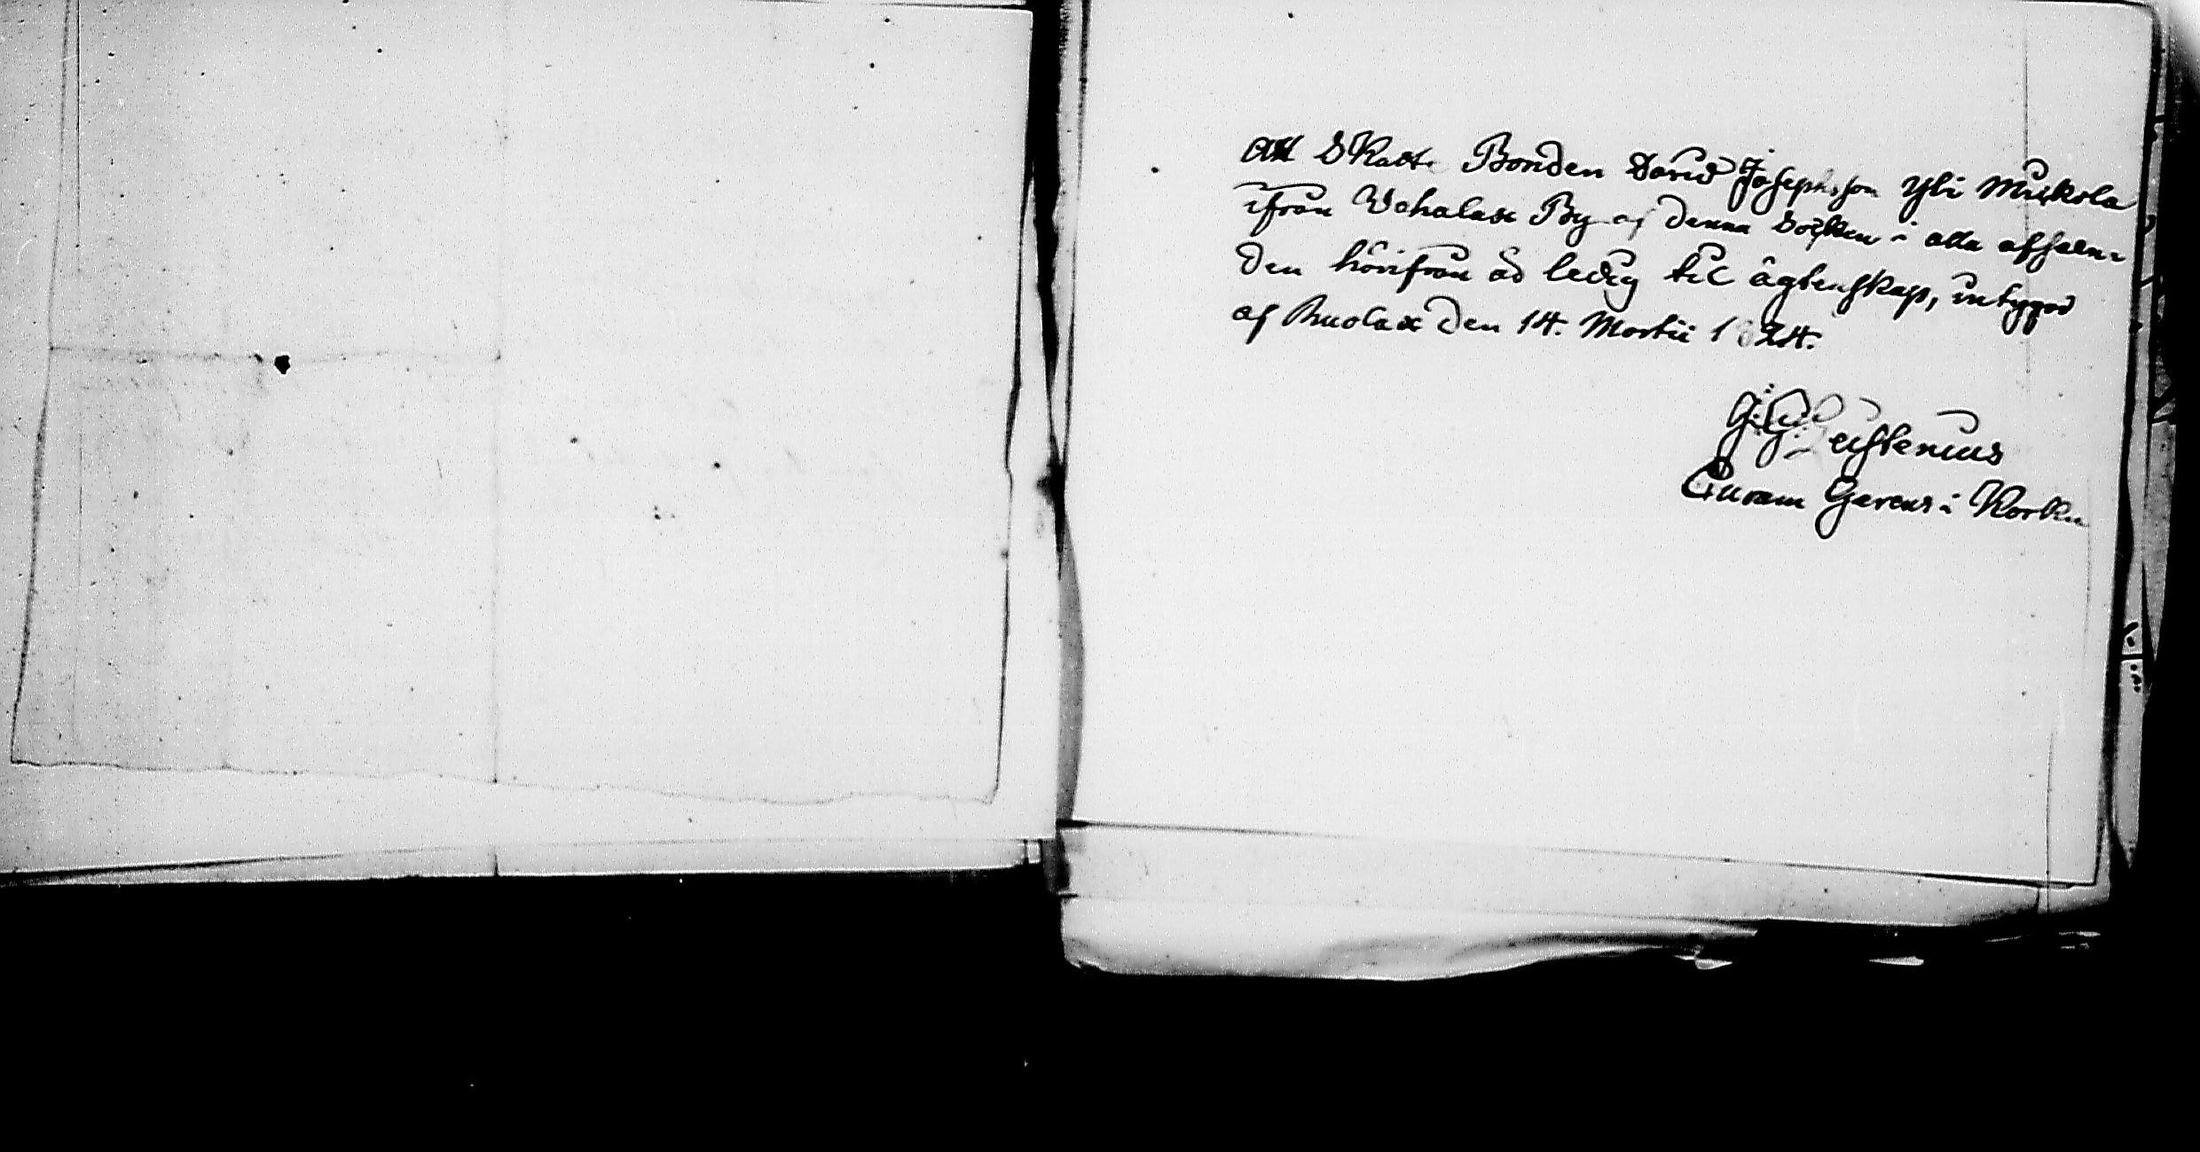 Att Skatte Bonden David Josephsson Yli Muskola
ifrån Wahalax By af denna Socken i alla afseen-
den härifrån är ledig til ägtenskap, intygas
af Ruolax den 14. Martii 1824.
G: G: Leistenius
Curam Gerens i Korku